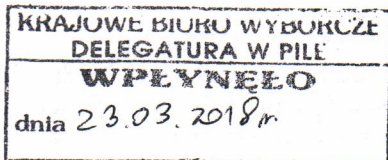 KRAJOWE BIURO WYBORCZE
DELEGATURA W PILE
WPŁYNĘŁO
dnia 23.03.2018r.